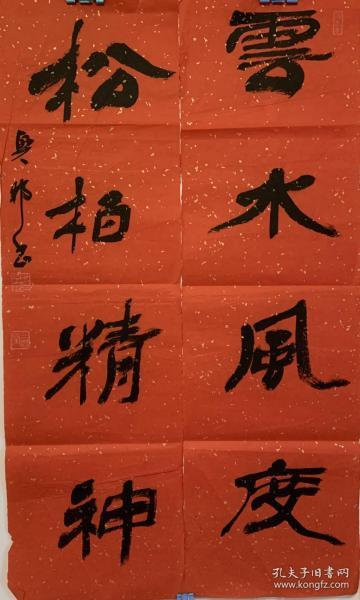 雲水風度
松柏精神
孔夫子旧书网
kongfz.com